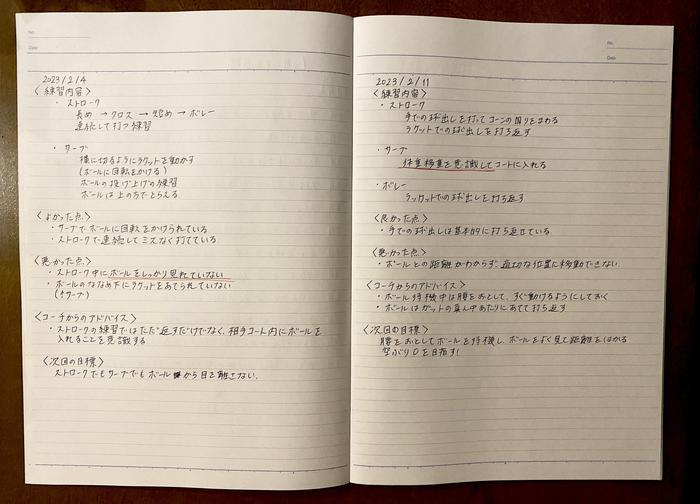 No.
Date
2023/2/4
〈練習内容〉
・ストローク
長め → クロス → 短め → ボレー
連続して打つ練習
・サーブ
横に切るようにラケットを動かす
(ボールに回転をかける)
ボールの投げ上げの練習
ボールは上の方でとらえる
〈よかった点〉
・サーブでボールに回転をかけられている
・ストロークで連続してミスなく打てている
〈悪かった点〉
・ストローク中にボールをしっかり見れていない
・ボールのななめ下にラケットをあてられていない
(↑サーブ)
〈コーチからのアドバイス〉
・ストロークの練習ではただ返すだけでなく、相手コート内にボールを
入れることを意識する
〈次回の目標〉
ストロークでもサーブでもボールから目を離さない。
No.
Date
2023/2/11
〈練習内容〉
・ストローク
手での球出しを打ってコーンの周りをまわる
ラケットでの球出しを打ち返す
・サーブ
体重移動を意識してコートに入れる
・ボレー
ラケットでの球出しを打ち返す
〈良かった点〉
・手での球出しは基本的に打ち返せている
〈悪かった点〉
・ボールとの距離がわからず、適切な位置に移動できない
〈コーチからのアドバイス〉
・ボール待機中は腰をおとして、すぐ動けるようにしておく
・ボールはガットの真ん中あたりにあてて打ち返す
〈次回の目標〉
腰をおとしてボールを待機し、ボールをよく見て距離をはかる
空ぶり0を目指す!